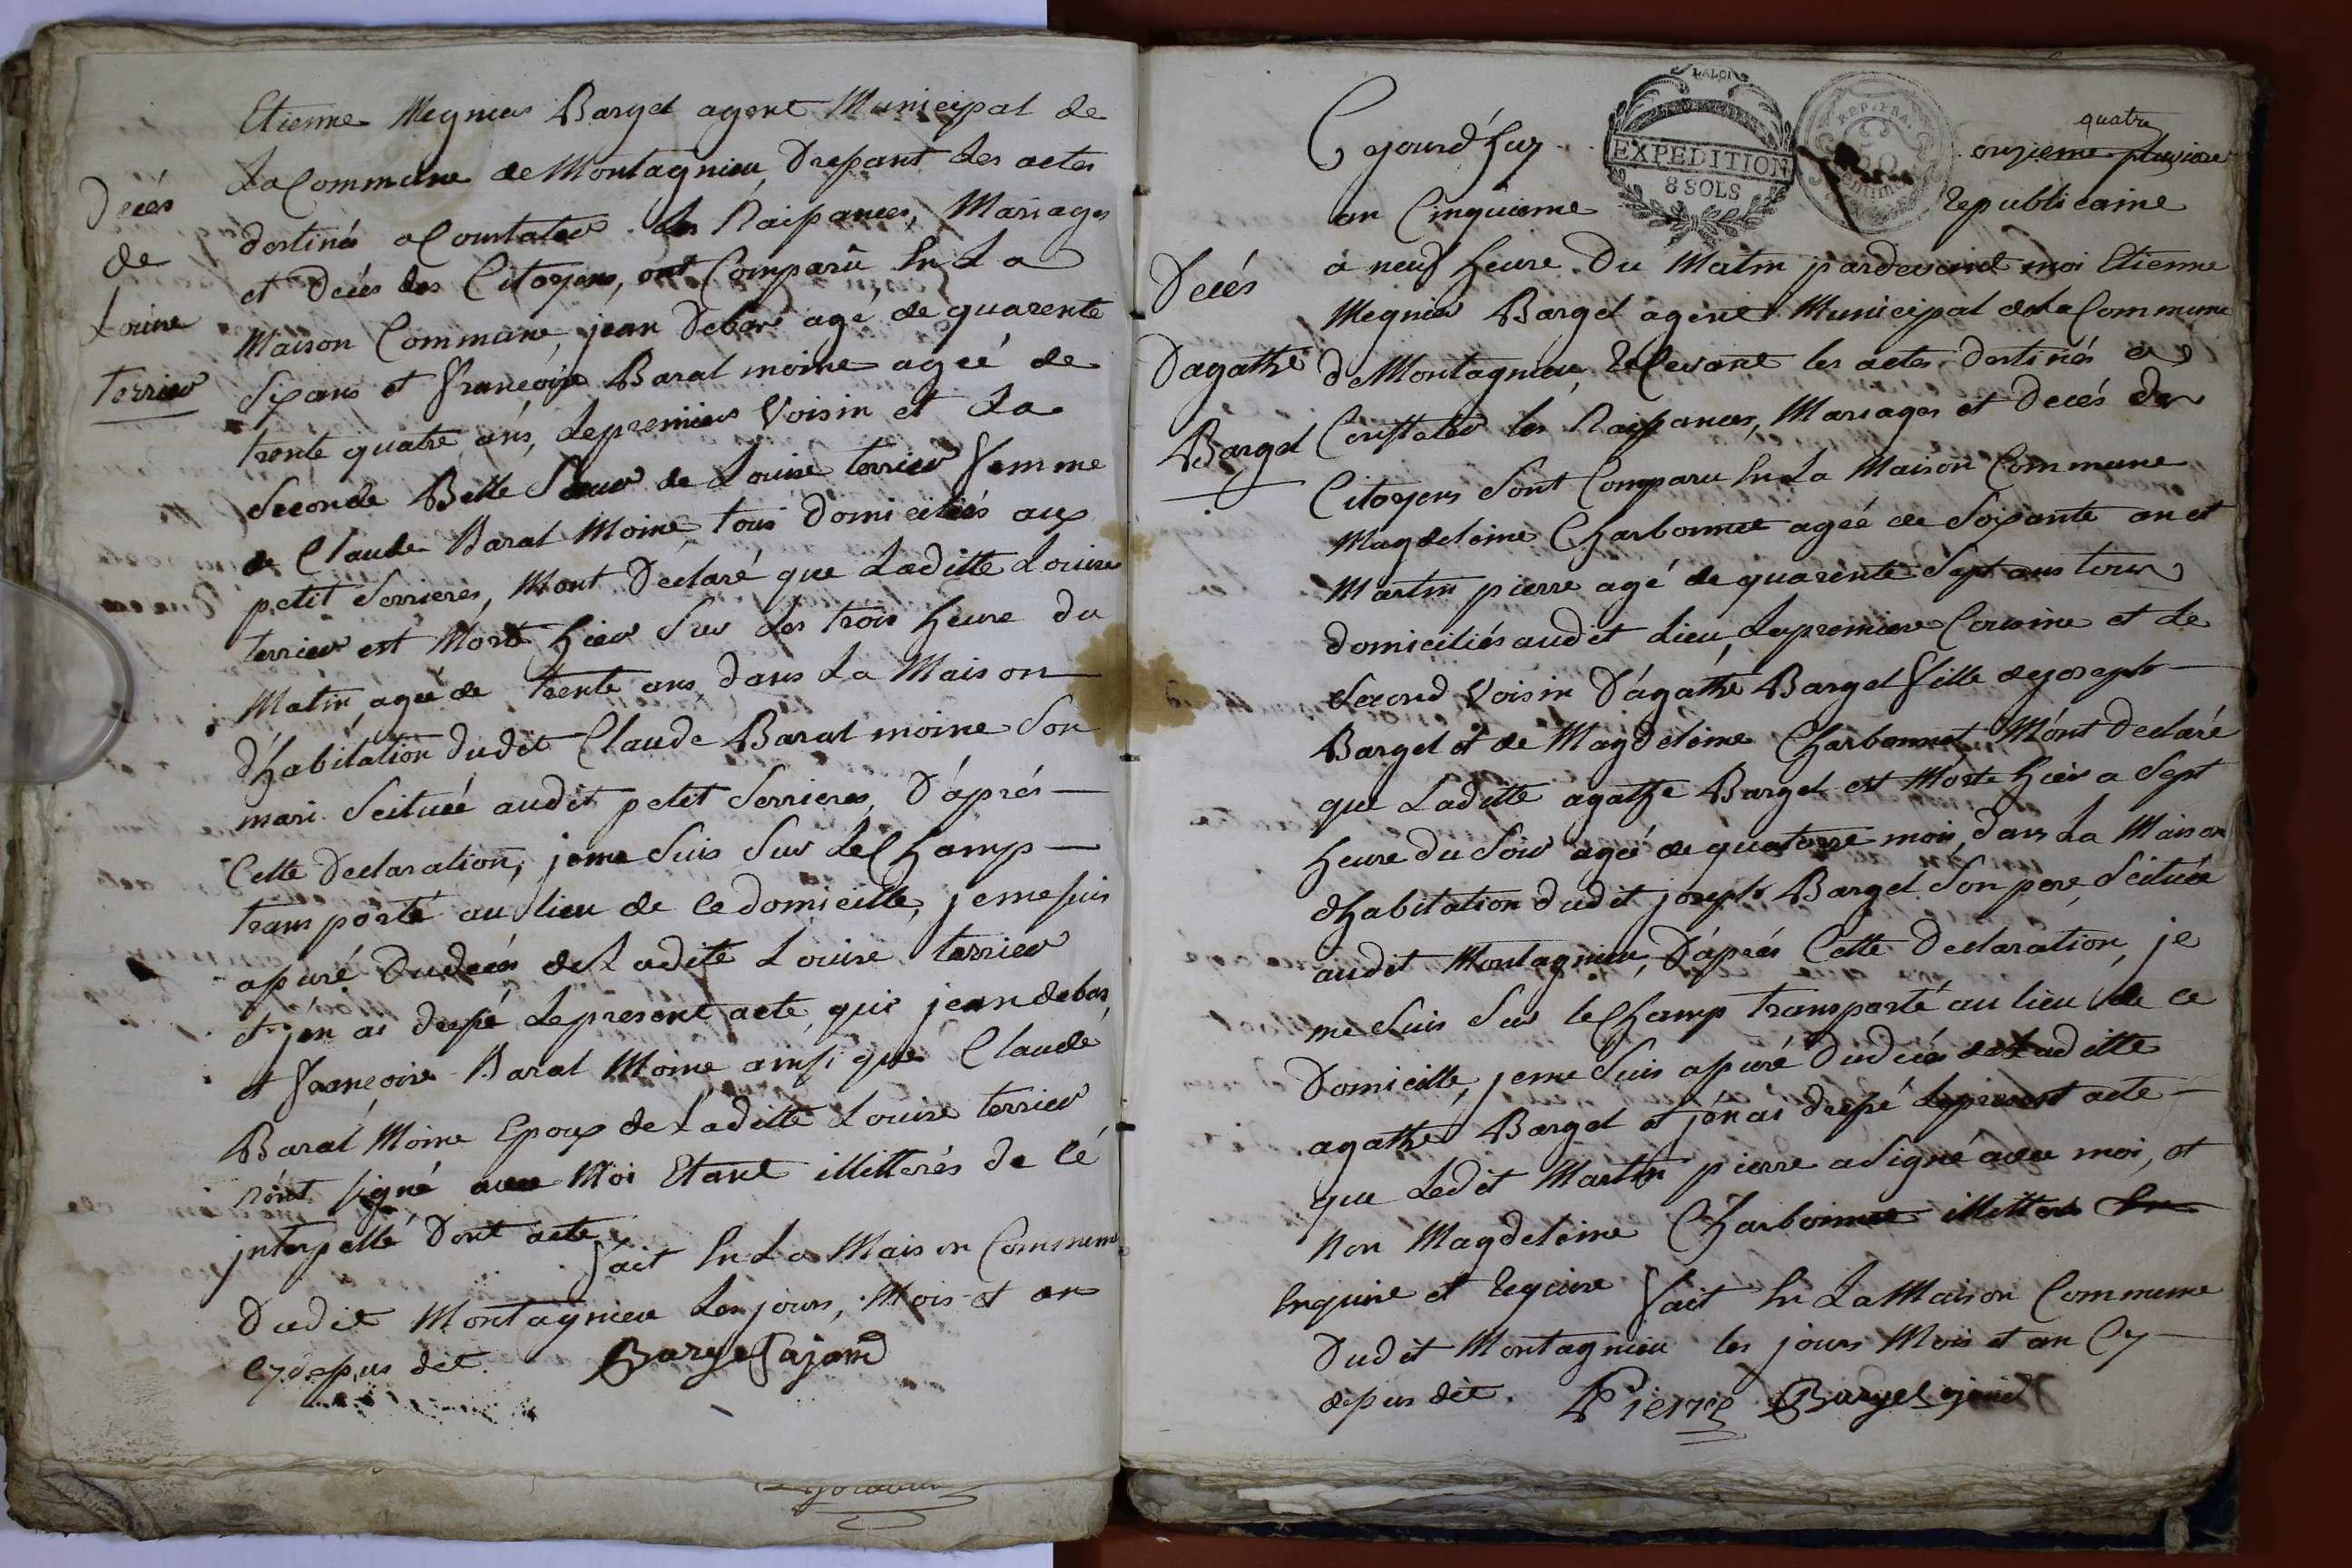 Etienne Megnier Barget agent Municipal de
La Commune de Montagnieu, Drepant les actes
Decés
destinés a Constater les Naipances, Mariages
de
et Decés des Citoyens, ont Comparû En La
Louise
Maison Commune, jean Debar agé de quarente
terrier
Sixans et françoise Barat moine agée de
trente quatre ans, Lepremier Voisin et La
Seconde Belle Sœur de Louise terrier femme
de Claude Barat Moine, tous Domiciliés aux
petit Serrieres, Mont Declaré que Laditte Louise
terrier est Morte hier Sur Les trois heure du
Matin, agée de trente ans, dans La Maison
D'habitation dudit Claude Barat moine Son
mari Scituée audit petit Serrieres, D'aprés
Cette Declaration, jeme Suis Sur LeChamp
transporté au lieu de Ce domicille, jemesuis
apuré Dudecés de Ladite Louise terrier
et jen ai drepé Lepresent acte, que jean debar,
et françoise Barat Moine ainsi que Claude
Barat Moine Epoux de Laditte Louise terrier
n'ont signé avec Moi Etant illitterés de Cé
jnterpellé Dont acte
fait En La Maison Commune
Dudit Montagnieu Les jours, Mois et an
Cydepus dit. Barget ajand
Cejourd'huy
LA LOI
EXPEDITION
8 SOLS
REP. FRA.
50
centimes
quatre
onzieme pluviose
an Cinquieme
Republicaine
a neuf heure Du Matin pardevant moi Etienne
Decés
Megnier Barget agent Municipal de La Commune
Dagathe
de Montagnieu, Relevant les actes destinés a
Barget
Constater les Naipances, Mariages et Decés des
Citoyens Sont Comparu En La Maison Commune
Magdeleine Charbonnet agée de Soixante an et
Martin pierre agé de quarente Sept ans tous
domiciliés audit Lieu, La premiere Cousine et Le
Second Voisin D'agathe Barget fille dejoseph
Barget et de Magdeleine Charbonnet M'ont Declaré
que Laditte agathe Barget est Morte hier a Sept
heure du Soir agée de quatorze mois, dans La Maison
d'habitation dudit joseph Barget Son pere, Scituée
audit Montagnieu, D'aprés Cette Declaration, je
me Suis Sur le Champ transporté au lieu de ce
Domicille, jeme Suis apuré Dudecés de Laditte
agathe Barget et j'en ai drepé Lepresent acte
que Ledit Martin pierre a Signé avec moi, et
Non Magdeleine Charbonnet illittere
Enquise et Requise fait En La Maison Commune
Dudit Montagnieu les jours Mois et an Cy
depus dit. Pierre Barget ajand